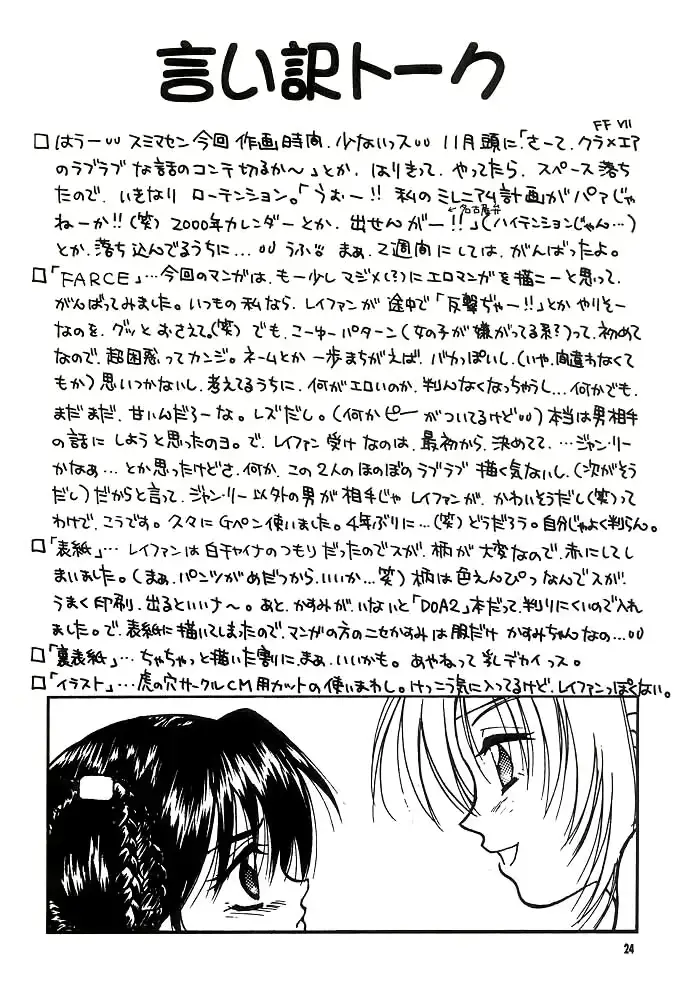 言い訳トーク
FF VII
□はうー○○ スミマセン今回作画時間、少ないっス○○ 11月頭に「さーて、クラ×エア
のラブラブな話のコンテ切るか〜」とか、はりきって、やってたら、スペース落ち
たので、いきなり ローテンション。「うぉー!! 私のミレニアム計画がパアじゃ
ねーか!!(笑) 2000年カレンダーとか、出せんがー!!」(ハイテンションじゃん…)
←名古屋弁
とか、落ち込んでるうちに…○○ うふ○○ まぁ、2週間にしては、がんばったよ。
□「FARCE」…今回のマンガは、もー少しマジメ(?)にエロマンガを描こーと思って、
がんばってみました。いつもの私なら、レイファンが途中で「反撃ぢゃー!!」とかやりそー
なのを、グッとおさえて。(笑) でも、こーゆーパターン(女の子が嫌がってる系?)って、初めて
なので、超困惑ってカンジ。ネームとか一歩まちがえば、バカっぽいし、(いや、間違わなくて
もか)思いつかないし、考えてるうちに、何がエロいのか、判んなくなっちゃうし…何かでも、
まだまだ、甘いんだろーな。レズだし。(何かピーがついてるけど○○)本当は男相手
の話にしようと思ったのヨ。で、レイファン受けなのは、最初から、決めてて、…ジャン・リー
かなぁ…とか思ったけどさ、何か、この2人のほのぼのラブラブ描く気ないし、(次がそう
だし)だからと言って、ジャン・リー以外の男が相手じゃレイファンが、かわいそうだし(笑)って
わけで、こうです。久々にGペン使いました。4年ぶりに…(笑)どうだろう。自分じゃよく判らん。
□「表紙」…レイファンは白チャイナのつもりだったのでスが、柄が大変なので、赤にしてし
まいました。(まぁ、パンツがめだつから、いいか…笑)柄は色えんぴつなんでスが、
うまく印刷、出るといいナ〜。あと、かすみが、いないと「DOA2」本だって、判りにくいので入れ
ました。で、表紙に描いてしまったので、マンガの方のニセかすみは服だけ かすみちゃんなの…○○
□「裏表紙」…ちゃちゃっと描いた割に、まぁ、いいかも。あやねって乳デカイっス。
□「イラスト」…虎の穴サークルCM用カットの使いまわし。けっこう気に入ってるけど、レイファンっぽくない。
24